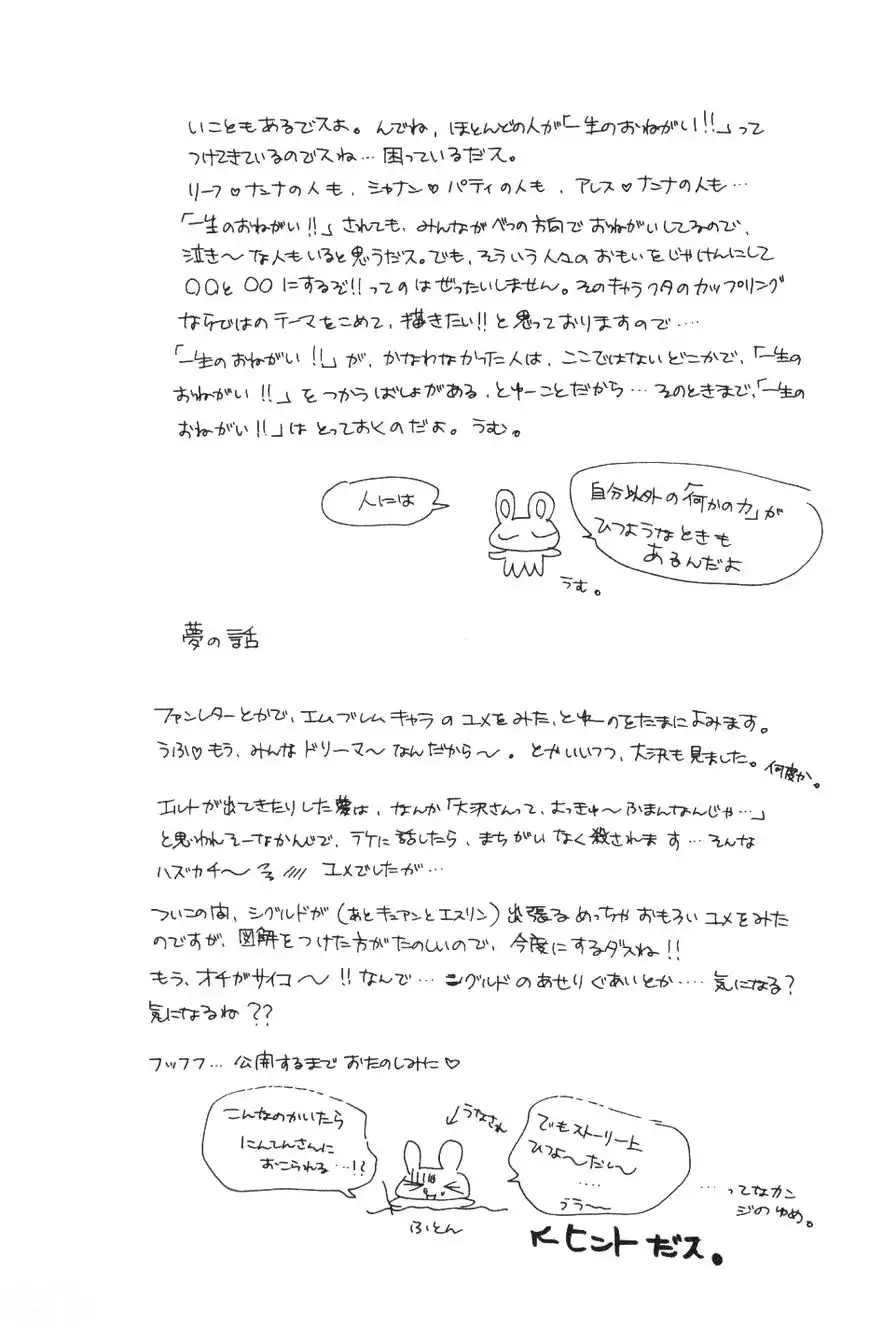 いこともあるでスよ。んでね，ほとんどの人が「一生のおねがい!!」って
つけてきているのでスね…困っているだス。
リーフ♡ナンナの人も，シャナン♡パティの人も，アレス♡ナンナの人も…
「一生のおねがい!!」されても，みんながべつの方向でおねがいしてるので，
泣き〜な人もいると思うだス。でも，そういう人々のおもいをじゃけんにして
〇〇と〇〇にするぞ!!ってのはぜったいしません。そのキャラフタのカップリング
ならではのテーマをこめて，描きたい!!と思っておりますので‥‥
「一生のおねがい!!」が，かなわなかった人は，ここではないどこかで，「一生の
おねがい!!」をつかうばしょがある，とゆーことだから…そのときまで，「一生の
おねがい!!」はとっておくのだよ。うむ。
人には
自分以外の「何かの力」が
ひつようなときも
あるんだよ
うむ。
夢の話
ファンレターとかで，エムブレムキャラのユメをみた，とゆーのをたまによみます。
うふ♡もう，みんなドリーマ〜なんだから〜。とかいいつつ，大沢も見ました。
何度か。
エルトが出てきたりした夢は，なんか「大沢さんって，よっきゅ〜ふまんなんじゃ…」
と思われそーなかんじで，ラケに話したら，まちがいなく殺されます…そんな
ハズカチ〜 ユメでしたが…
ついこの間，シグルドが(あとキュアンとエスリン)出張るめっちゃおもろいユメをみた
のですが，図解をつけた方がたのしいので，今度にするダスね!!
もう，オチがサイコ〜!!なんで…シグルドのあせりぐあいとか‥‥気になる?
気になるね??
フッフフ…公開するまでおたのしみに♡
こんなのかいたら
にんてんさんに
おこられる…!?
うなされ
ふとん
でもストーリー上
ひつよ〜だし〜
‥‥
うう〜
…ってなカン
ジのゆめ。
←ヒントだス。